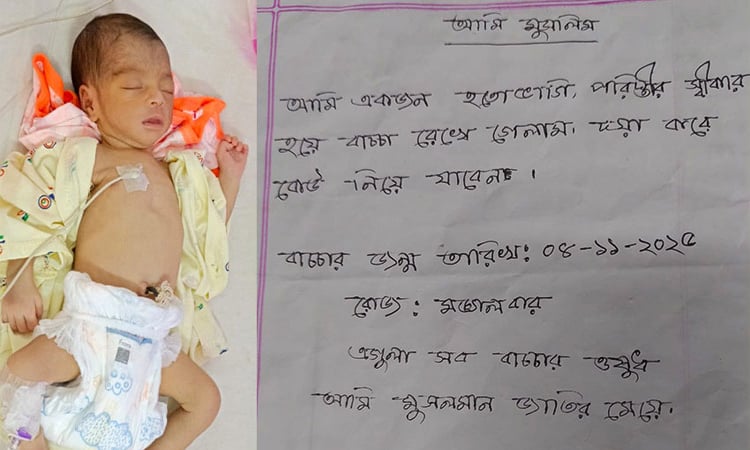 আমি মুসলিম
আমি একজন হতোভাগি, পরিস্তীর স্বীকার
হয়ে বাচ্চা রেখে গেলাম। দয়া করে
কেউ নিয়ে যাবেন।
বাচ্চার জন্ম তারিখ: ০৪-১১-২০২৫
রোজ: মঙ্গলবার
এগুলা সব বাচ্চার ওষুধ
আমি মুসলমান জাতির মেয়ে।